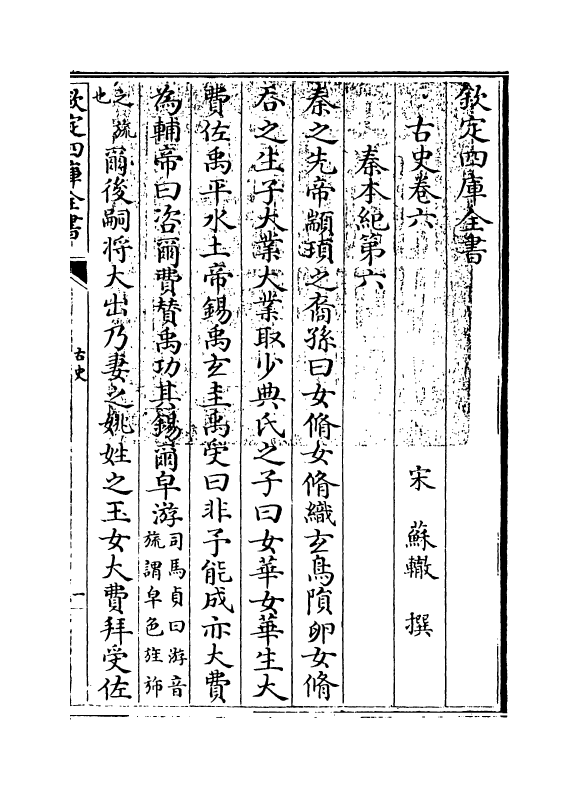 欽定四庫全書
古史卷六
宋 蘇轍 撰
秦本紀第六
秦之先帝顓頊之裔孫曰女脩女脩織玄鳥隕卵女脩
吞之生子大業大業取少典氏之子曰女華女華生大
費佐禹平水土帝錫禹玄圭禹受曰非予能成亦大費
為輔帝曰咨爾費贊禹功其錫爾皁游司馬貞曰游音旒謂皁色旌旆
之旒也爾後嗣将大出乃妻之姚姓之玉女大費拜受佐
欽定四庫全書
古史
一